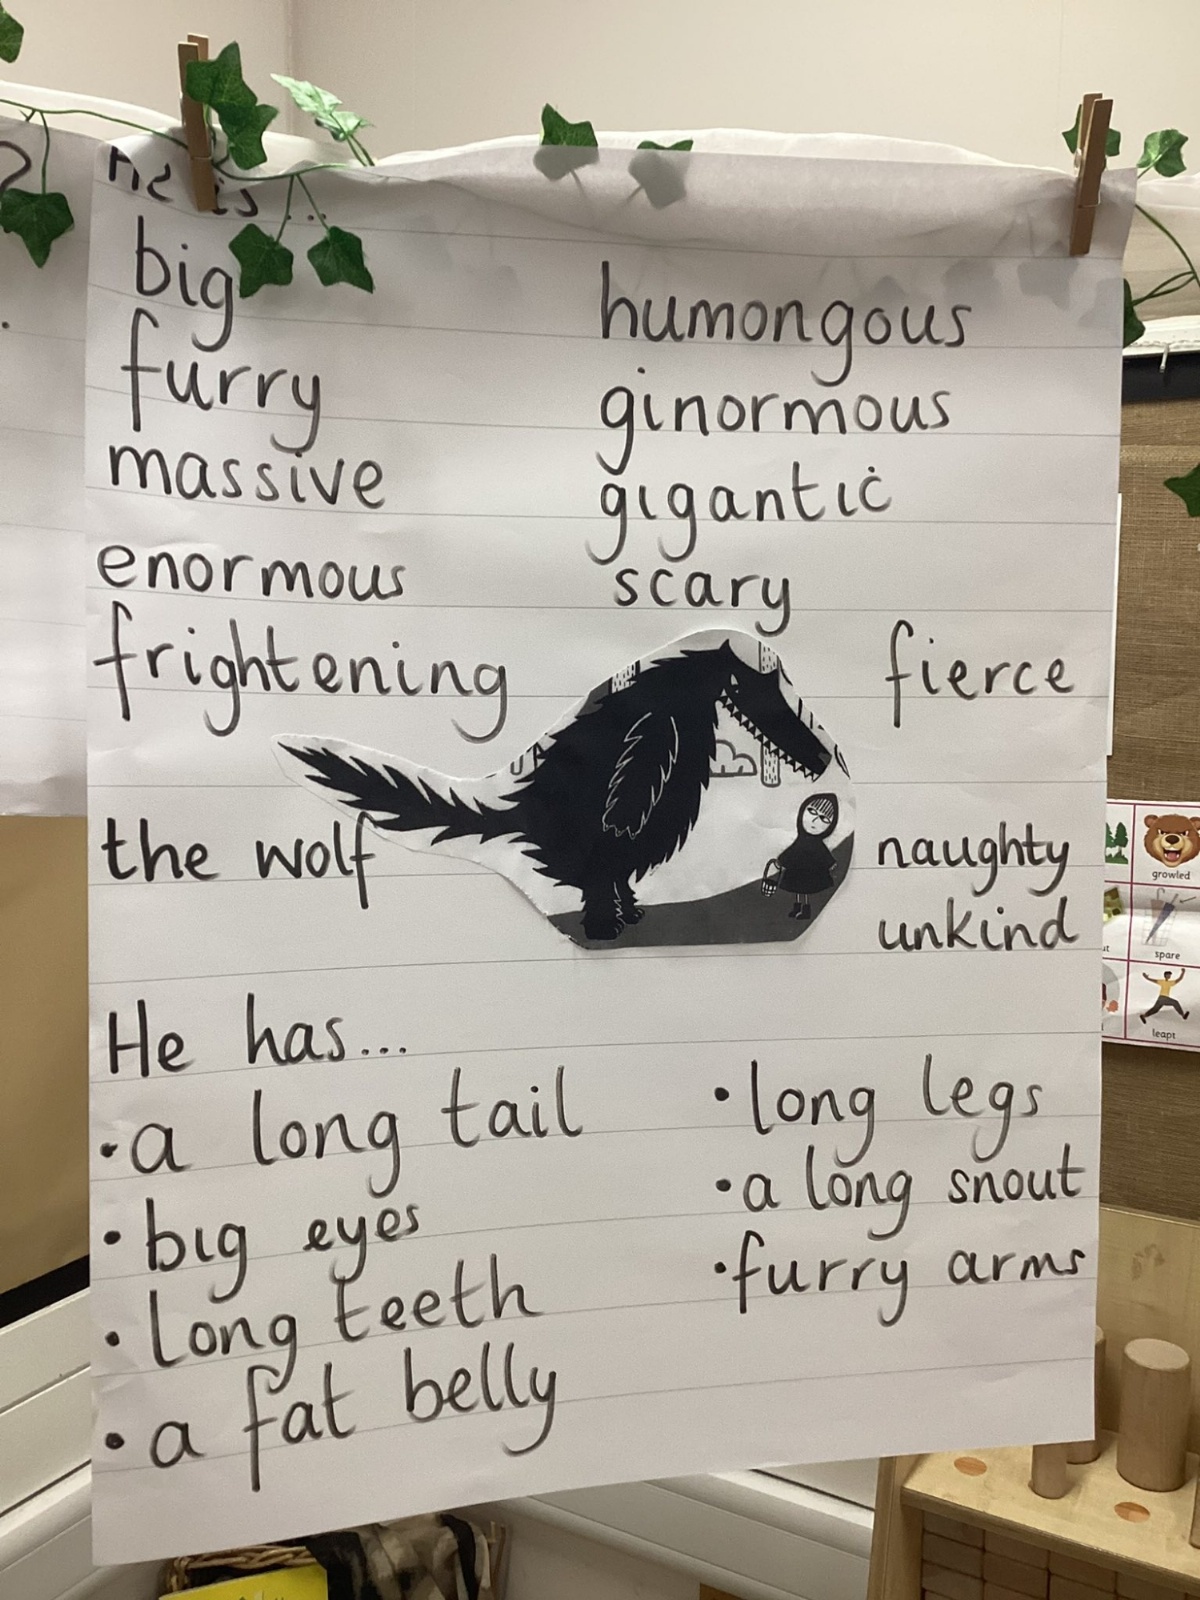 He is...
big
furry
massive
enormous
frightening
humongous
ginormous
gigantic
scary
fierce
the wolf
naughty
unkind
He has...
• a long tail
• big eyes
• long teeth
• a fat belly
• long legs
• a long snout
• furry arms
growled
spare
leapt